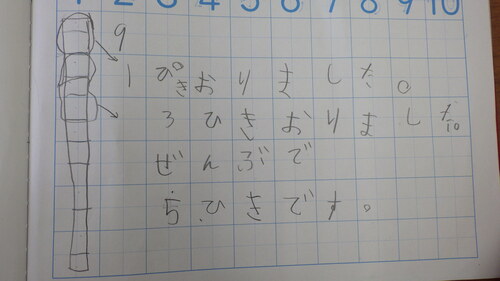 1 2 3 4 5 6 7 8 9 10
9
1ぴきおりました。
3ひきおりました。
ぜんぶで
5ひきです。